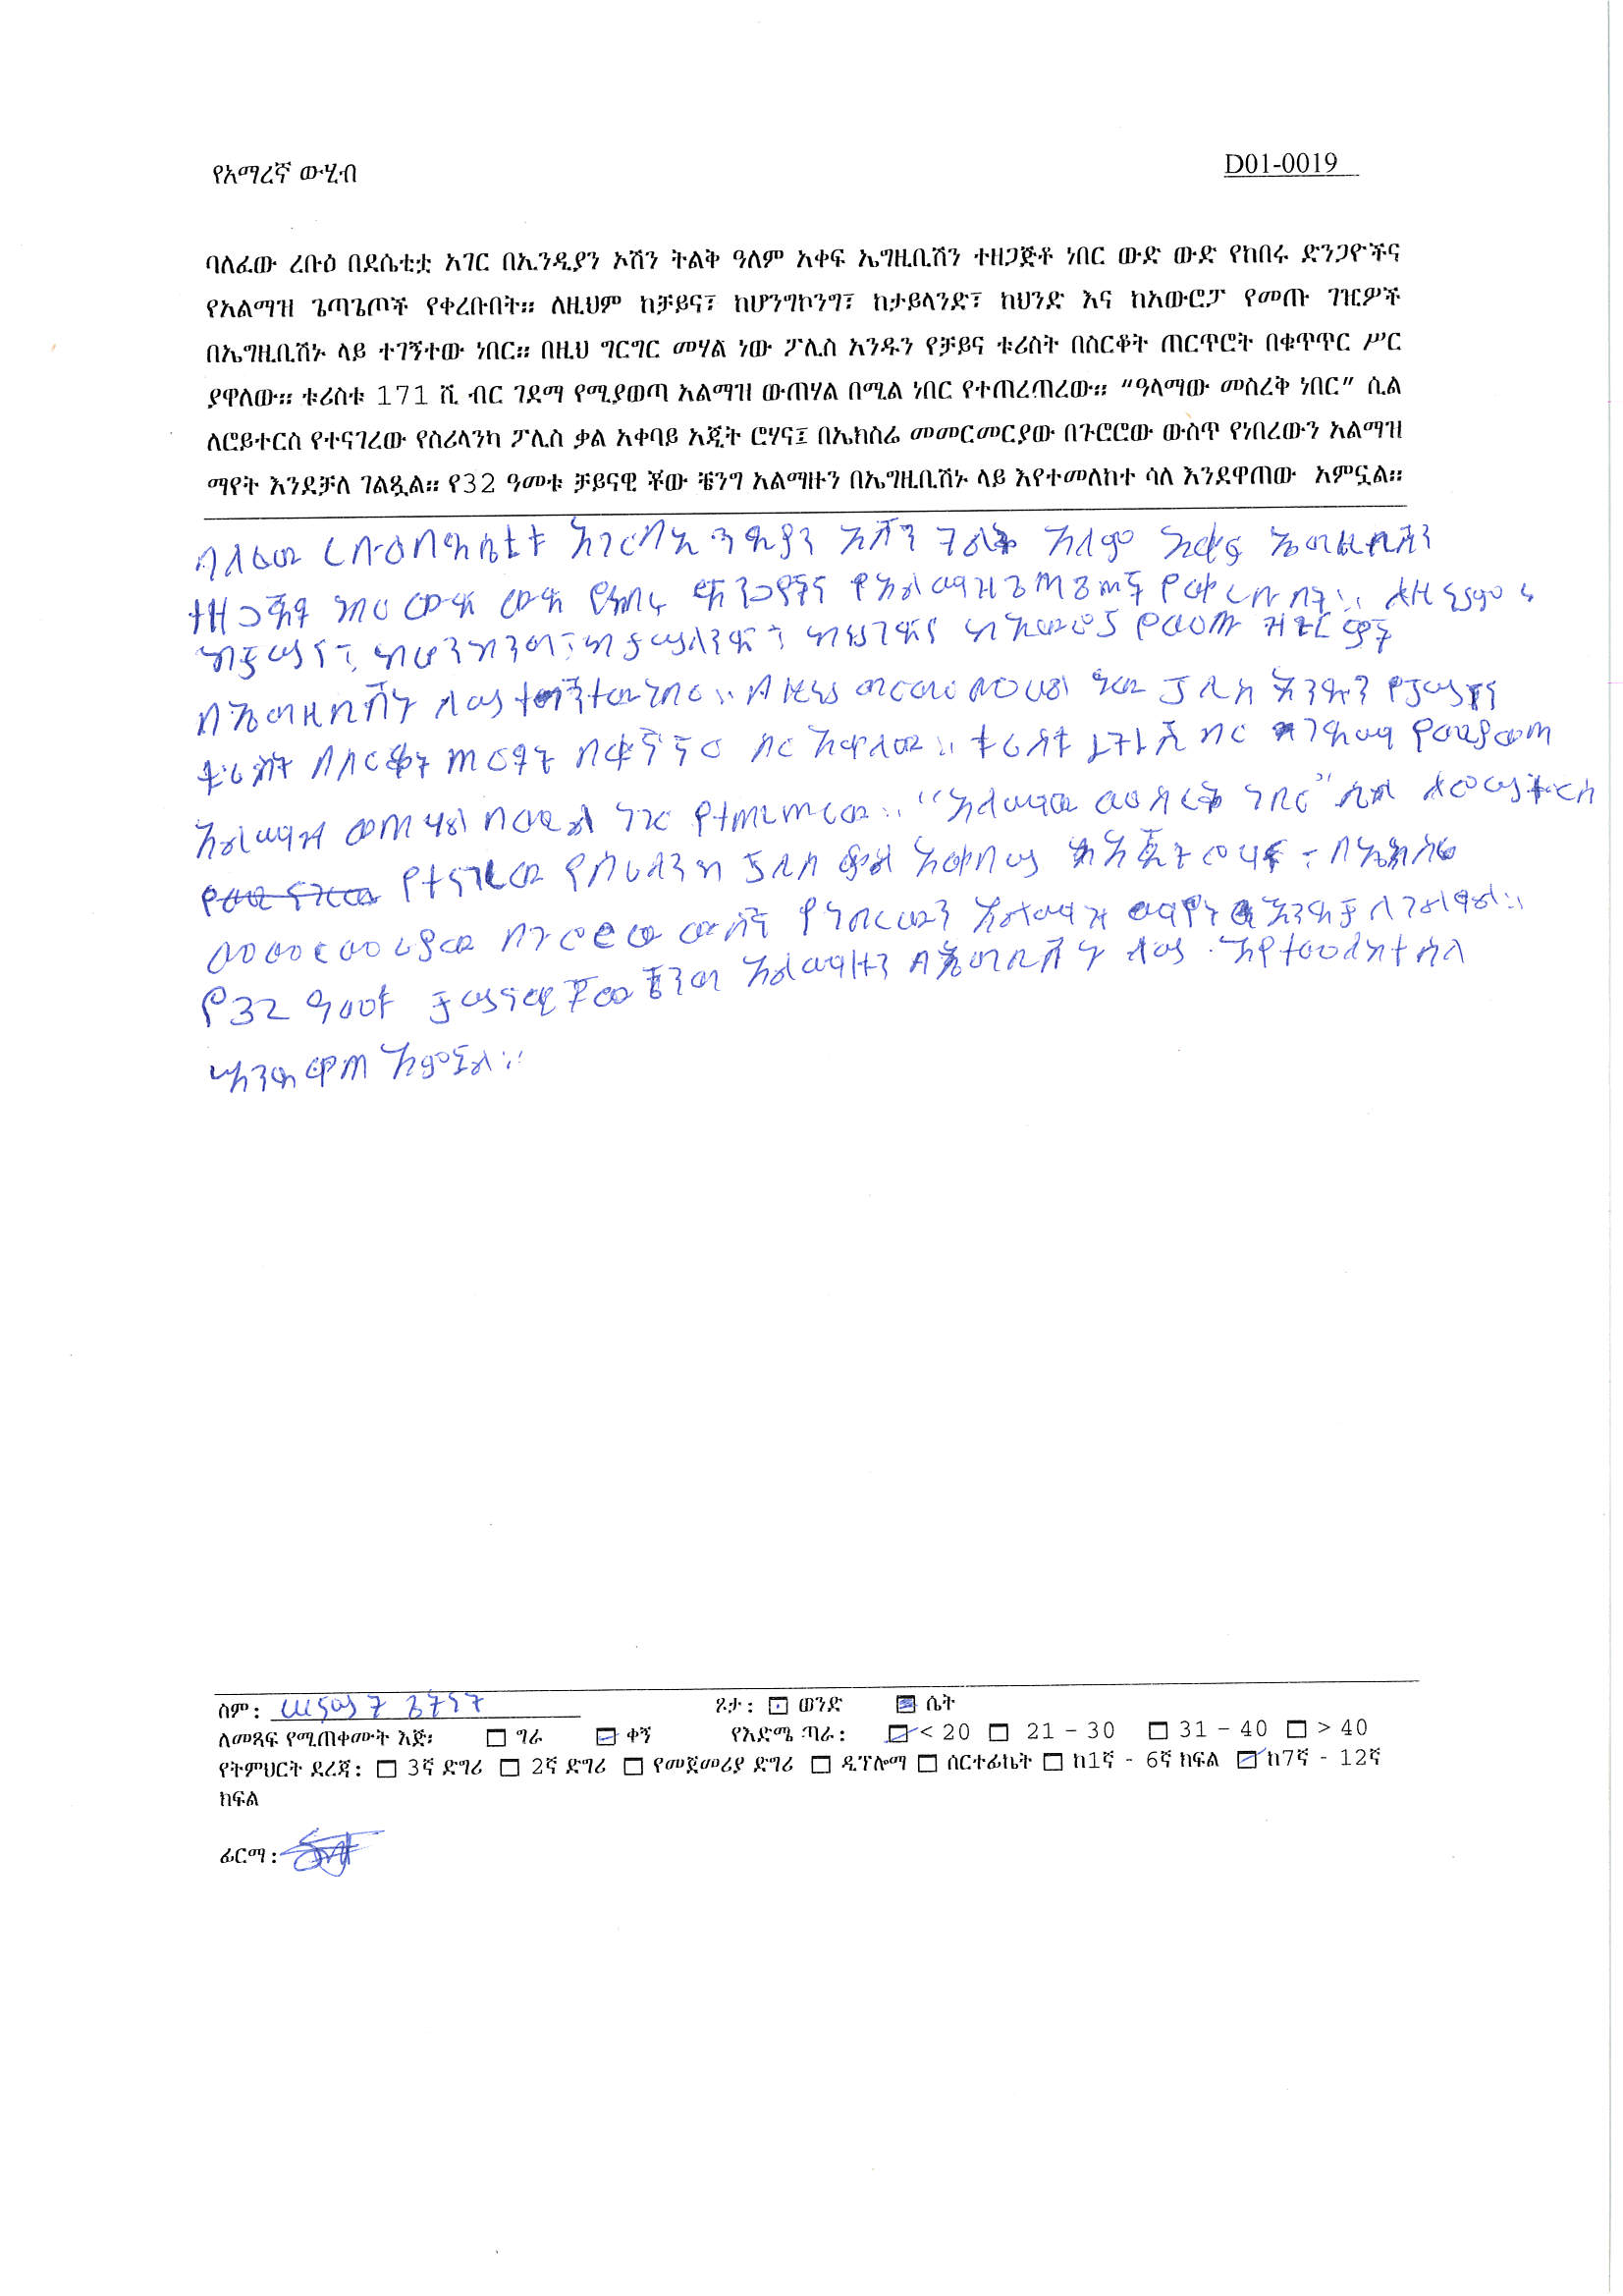 የአማረኛ ውሂብ
D01-0019
ባለፈው ረቡዕ በደሴቲቷ አገር በኢንዲያን ኦሽን ትልቅ ዓለም አቀፍ ኤግዚቢሽን ተዘጋጅቶ ነበር ውድ ውድ የከበሩ ድንጋዮችና
የአልማዝ ጌጣጌጦች የቀረቡበት። ለዚህም ከቻይና፣ ከሆንግኮንግ፣ ከታይላንድ፣ ከህንድ እና ከአውሮፓ የመጡ ገዢዎች
በኤግዚቢሽኑ ላይ ተገኝተው ነበር። በዚህ ግርግር መሃል ነው ፖሊስ አንዱን የቻይና ቱሪስት በስርቆት ጠርጥሮት በቁጥጥር ሥር
ያዋለው። ቱሪስቱ 171 ሺ ብር ገደማ የሚያወጣ አልማዝ ውጠሃል በሚል ነበር የተጠረጠረው። “ዓላማው መስረቅ ነበር” ሲል
ለሮይተርስ የተናገረው የስሪላንካ ፖሊስ ቃል አቀባይ አጂት ሮሃና፤ በኤክስሬ መመርመርያው በጉሮሮው ውስጥ የነበረውን አልማዝ
ማየት እንደቻለ ገልጿል። የ32 ዓመቱ ቻይናዊ ቾው ቼንግ አልማዙን በኤግዚቢሽኑ ላይ እየተመለከተ ሳለ እንደዋጠው አምኗል።
ባለፈው ረቡዕ በዳሴቲት አገር በኢንዲያን ኦሽን ትልቅ አለም አቀፍ ኤግዚቢሽን
ተዘጋጅቶ ነበር ውድ ውድ የከበሩ ድንጋዮችና የአልማዝ ጌጣጌጦች የቀረቡበት።
ከቻይና፣ ከታይላንድ፣ የመጡ
በኤግዚቢሽኑ ላይ ተገኝተው ነበር። በዚህ ግርግር መሀል ነው ፖሊስ አንዱን የቻይና
ቱሪስት በስርቆት ጠርጥት ስር አዋለው። ቱሪስቱ ብር ገዳማ የሚያወጣ
አልማዝ ውጠሃል በሚል ነበር የተጠረጠረው። “አላማው መስረቅ ነበር” ሲል
የተናገረው የስሪላንካ ፖሊስ ቃል አቀባይ
በጉሮሮው ውስጥ የነበረውን አልማዝ ማየት
የ32 ዓመቱ ቻይናዊ ቾው ቼንግ አልማዙን ላይ እየተመለከተ ሳለ
እንደዋጠ አምኗል።
ስም:
ጾታ: ወንድ ሴት
ለመጻፍ የሚጠቀሙት እጅ፡ ግራ ቀኝ የእድሜ ጣራ: < 20 21 - 30 31 - 40 > 40
የትምህርት ደረጃ: 3ኛ ድግሪ 2ኛ ድግሪ የመጀመሪያ ድግሪ ዲፕሎማ ሰርተፊኬት ከ1ኛ - 6ኛ ክፍል ከ7ኛ - 12ኛ
ክፍል
ፊርማ: